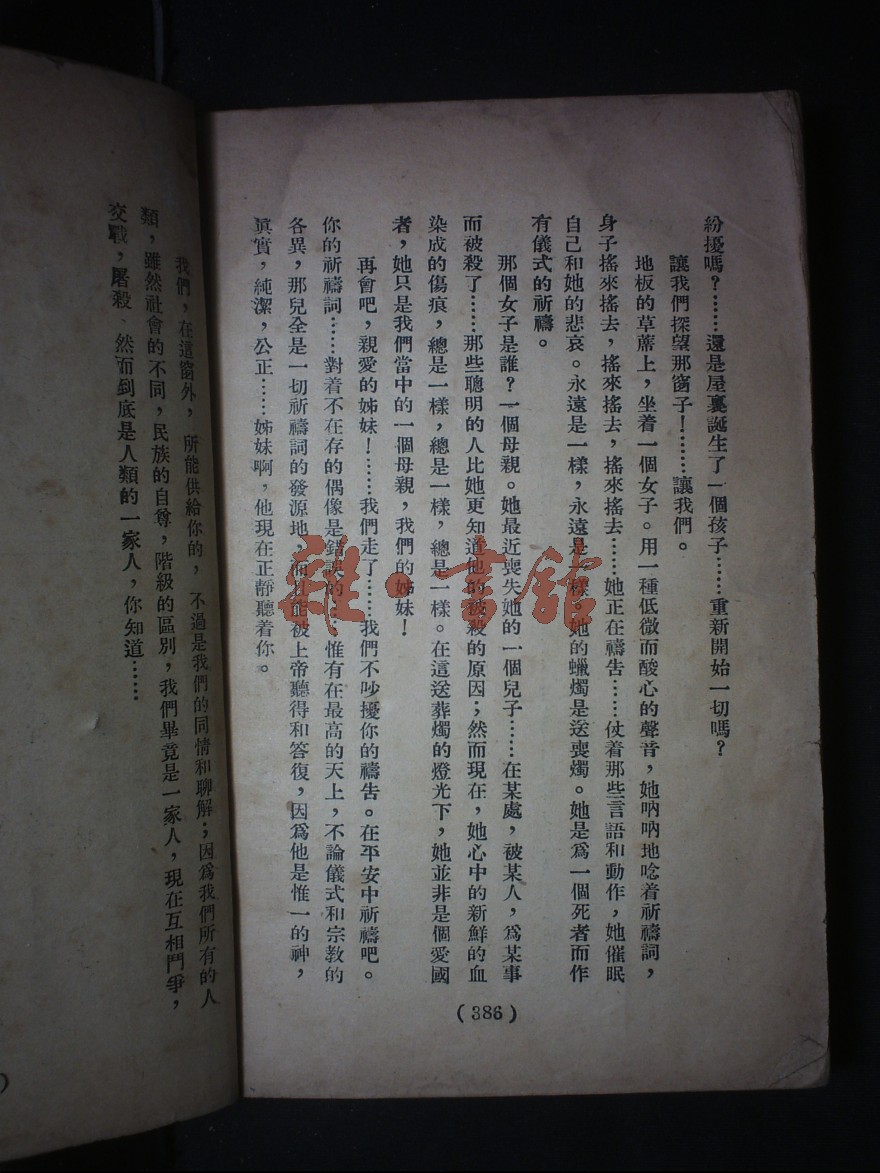 紛擾嗎?……還是屋裏誕生了一個孩子……重新開始一切嗎?
讓我們探望那窗子!……讓我們。
地板的草蓆上,坐着一個女子。用一種低微而酸心的聲音,她吶吶地唸着祈禱詞,
身子搖來搖去,搖來搖去,搖來搖去……她正在禱告……仗着那些言語和動作,她催眠
自己和她的悲哀。永遠是一樣,永遠是一樣。她的蠟燭是送喪燭。她是爲一個死者而作
有儀式的祈禱。
那個女子是誰?一個母親。她最近喪失她的一個兒子……在某處,被某人,爲某事
而被殺了……那些聰明的人比她更知道他的被殺的原因;然而現在,她心中的新鮮的血
染成的傷痕,總是一樣,總是一樣,總是一樣。在這送葬燭的燈光下,她並非是個愛國
者,她只是我們當中的一個母親,我們的姊妹!
再會吧,親愛的姊妹!……我們走了……我們不吵擾你的禱告。在平安中祈禱吧。
你的祈禱詞……對着不在存的偶像是錯誤的……惟有在最高的天上,不論儀式和宗教的
各異,那兒全是一切祈禱詞的發源地,而且能被上帝聽得和答復,因爲他是惟一的神,
眞實,純潔,公正……姊妹啊,他現在正靜聽着你。
(386)
我們,在這窗外,所能供給你的,不過是我們的同情和聊解;因爲我們所有的人
類,雖然社會的不同,民族的自尊,階級的區別,我們畢竟是一家人,現在互相鬥爭,
交戰,屠殺,然而到底是人類的一家人,你知道……
)
雜·書館